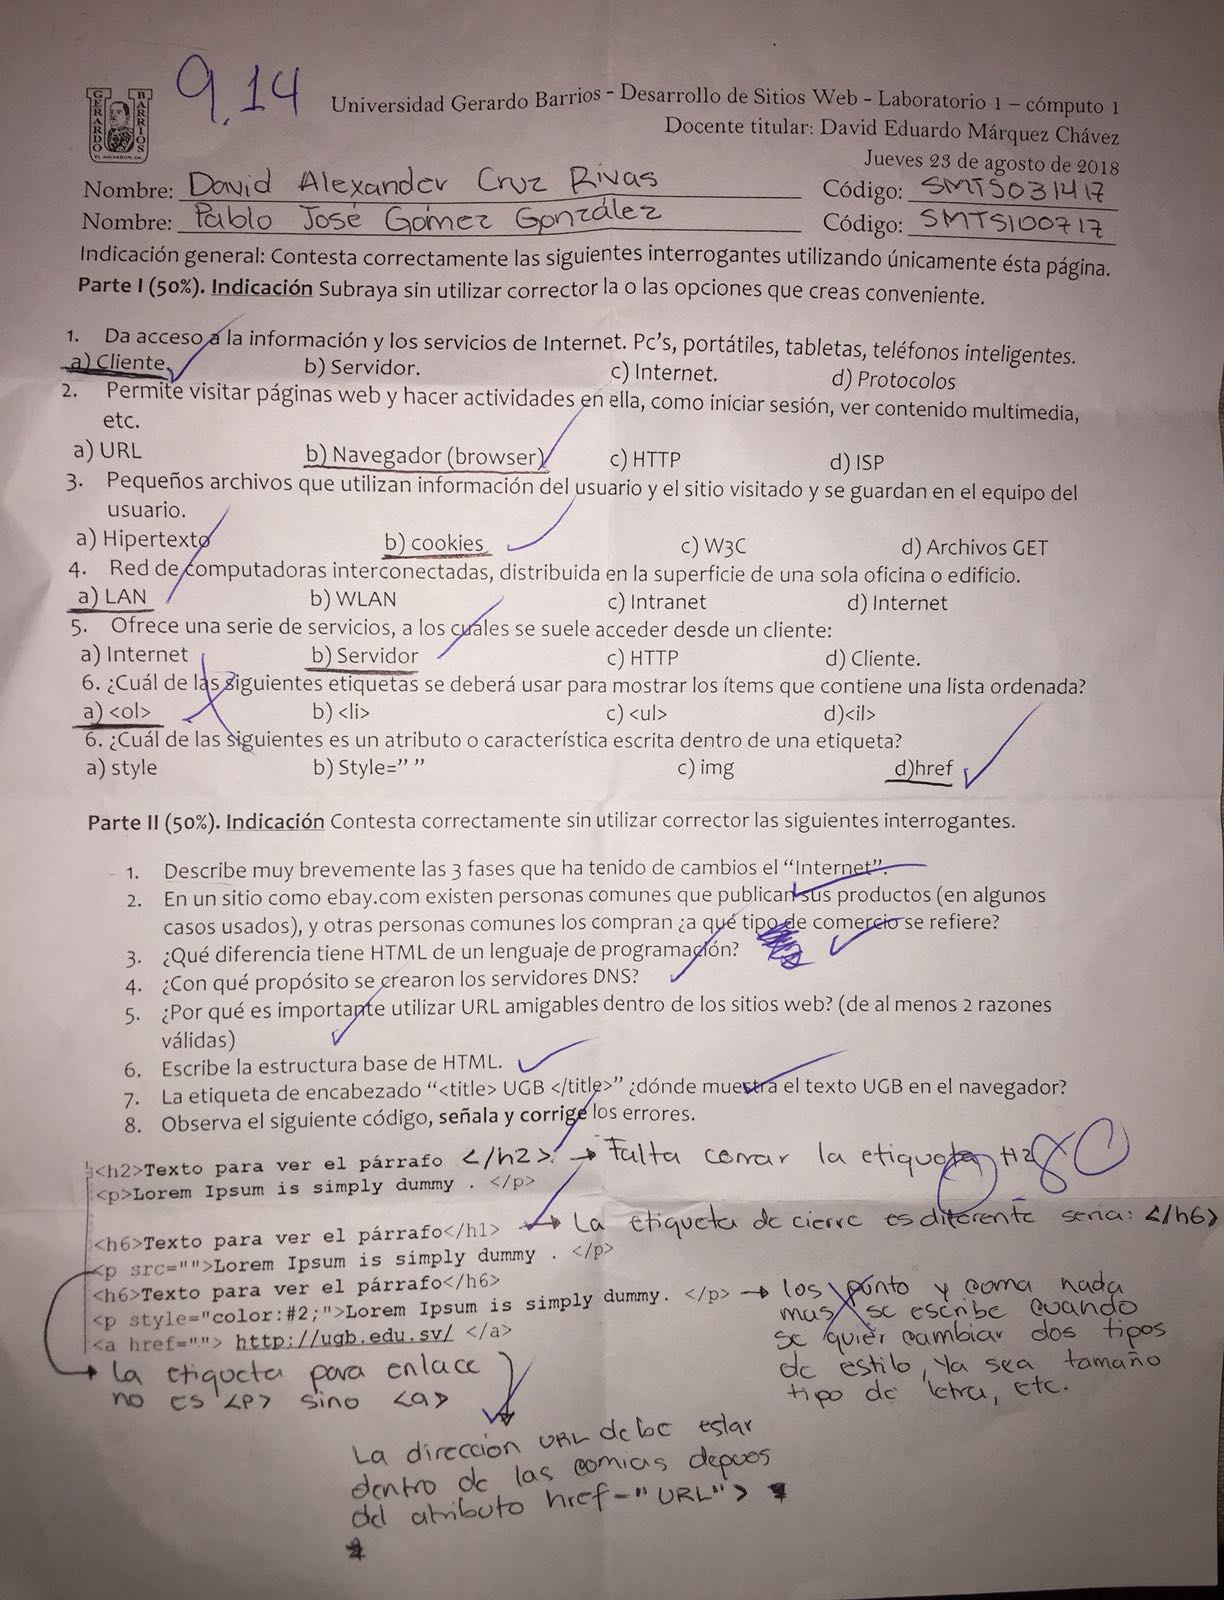 9.14
GERARDO BARRIOS
EL SALVADOR, CA.
Universidad Gerardo Barrios - Desarrollo de Sitios Web - Laboratorio 1 – cómputo 1
Docente titular: David Eduardo Márquez Chávez
Jueves 23 de agosto de 2018
Nombre: David Alexander Cruz Rivas Código: SMTS031417
Nombre: Pablo José Gómez González Código: SMTS100717
Indicación general: Contesta correctamente las siguientes interrogantes utilizando únicamente ésta página.
Parte I (50%). Indicación Subraya sin utilizar corrector la o las opciones que creas conveniente.
1. Da acceso a la información y los servicios de Internet. Pc's, portátiles, tabletas, teléfonos inteligentes.
a) Cliente. b) Servidor. c) Internet. d) Protocolos
2. Permite visitar páginas web y hacer actividades en ella, como iniciar sesión, ver contenido multimedia,
etc.
a) URL b) Navegador (browser) c) HTTP d) ISP
3. Pequeños archivos que utilizan información del usuario y el sitio visitado y se guardan en el equipo del
usuario.
a) Hipertexto b) cookies c) W3C d) Archivos GET
4. Red de computadoras interconectadas, distribuida en la superficie de una sola oficina o edificio.
a) LAN b) WLAN c) Intranet d) Internet
5. Ofrece una serie de servicios, a los cuáles se suele acceder desde un cliente:
a) Internet b) Servidor c) HTTP d) Cliente.
6. ¿Cuál de las siguientes etiquetas se deberá usar para mostrar los ítems que contiene una lista ordenada?
a) <ol> b) <li> c) <ul> d)<il>
6. ¿Cuál de las siguientes es un atributo o característica escrita dentro de una etiqueta?
a) style b) Style=” ” c) img d)href
Parte II (50%). Indicación Contesta correctamente sin utilizar corrector las siguientes interrogantes.
1. Describe muy brevemente las 3 fases que ha tenido de cambios el “Internet”.
2. En un sitio como ebay.com existen personas comunes que publican sus productos (en algunos
casos usados), y otras personas comunes los compran ¿a qué tipo de comercio se refiere?
3. ¿Qué diferencia tiene HTML de un lenguaje de programación?
4. ¿Con qué propósito se crearon los servidores DNS?
5. ¿Por qué es importante utilizar URL amigables dentro de los sitios web? (de al menos 2 razones
válidas)
6. Escribe la estructura base de HTML.
7. La etiqueta de encabezado “<title> UGB </title>” ¿dónde muestra el texto UGB en el navegador?
8. Observa el siguiente código, señala y corrige los errores.
<h2>Texto para ver el párrafo </h2>. → Falta cerrar la etiqueta H2
<p>Lorem Ipsum is simply dummy . </p>
<h6>Texto para ver el párrafo</h1> → La etiqueta de cierre es diferente seria: </h6>
<p src="">Lorem Ipsum is simply dummy . </p>
<h6>Texto para ver el párrafo</h6>
<p style="color:#2;">Lorem Ipsum is simply dummy. </p> → los punto y coma nada
<a href=""> http://ugb.edu.sv/ </a>
mas se escribe cuando
se quier cambiar dos tipos
de estilo, Ya sea tamaño
tipo de letra, etc.
→ la etiqueta para enlace
no es <P> sino <a>
La dirección URL debe estar
dentro de las comias depues
del atributo href="URL">